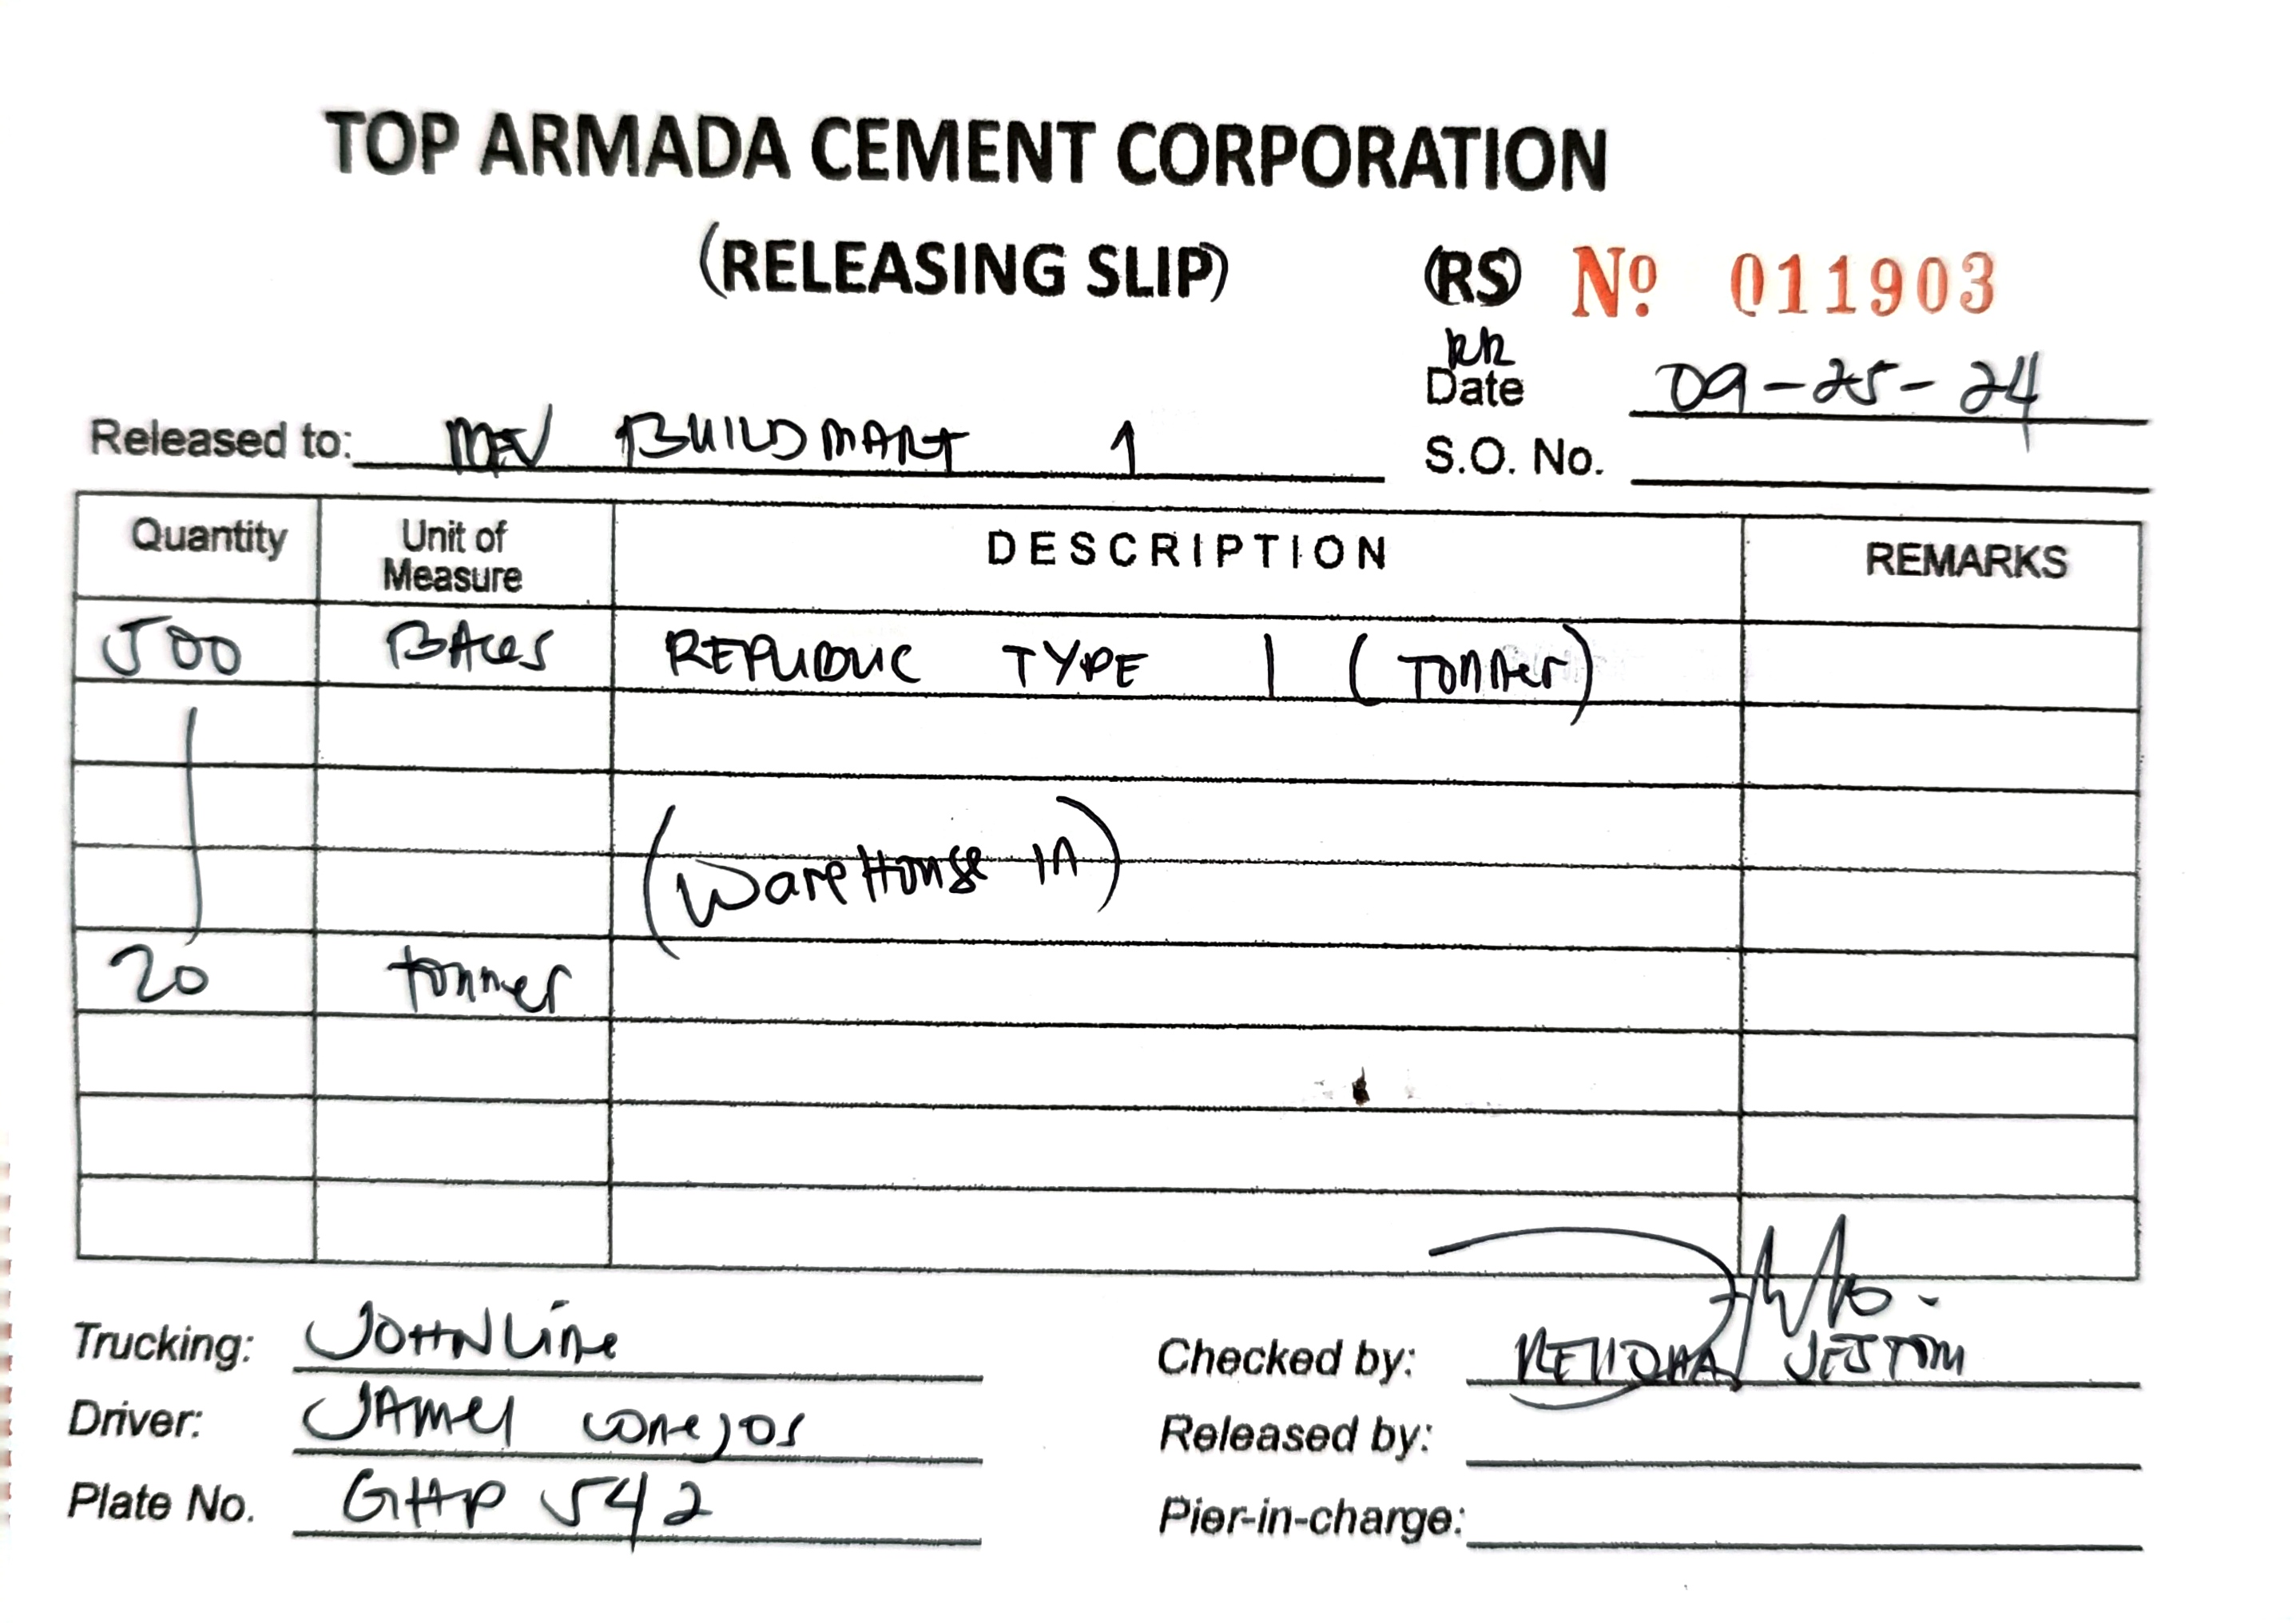 TOP ARMADA CEMENT CORPORATION
(RELEASING SLIP) (RS) Nº 011903
Date 09-25-24
Released to: MEV BUILDMART 1 S.O. No.
Quantity Unit of Measure DESCRIPTION REMARKS
500 BAGS REPUBLIC TYPE 1 (TONNER)
(WareHouse IN)
20 tonner
Trucking: JOHNLINE
Driver: JAMES CONEJOS
Plate No. GHP 542
Checked by:
Released by:
Pier-in-charge: